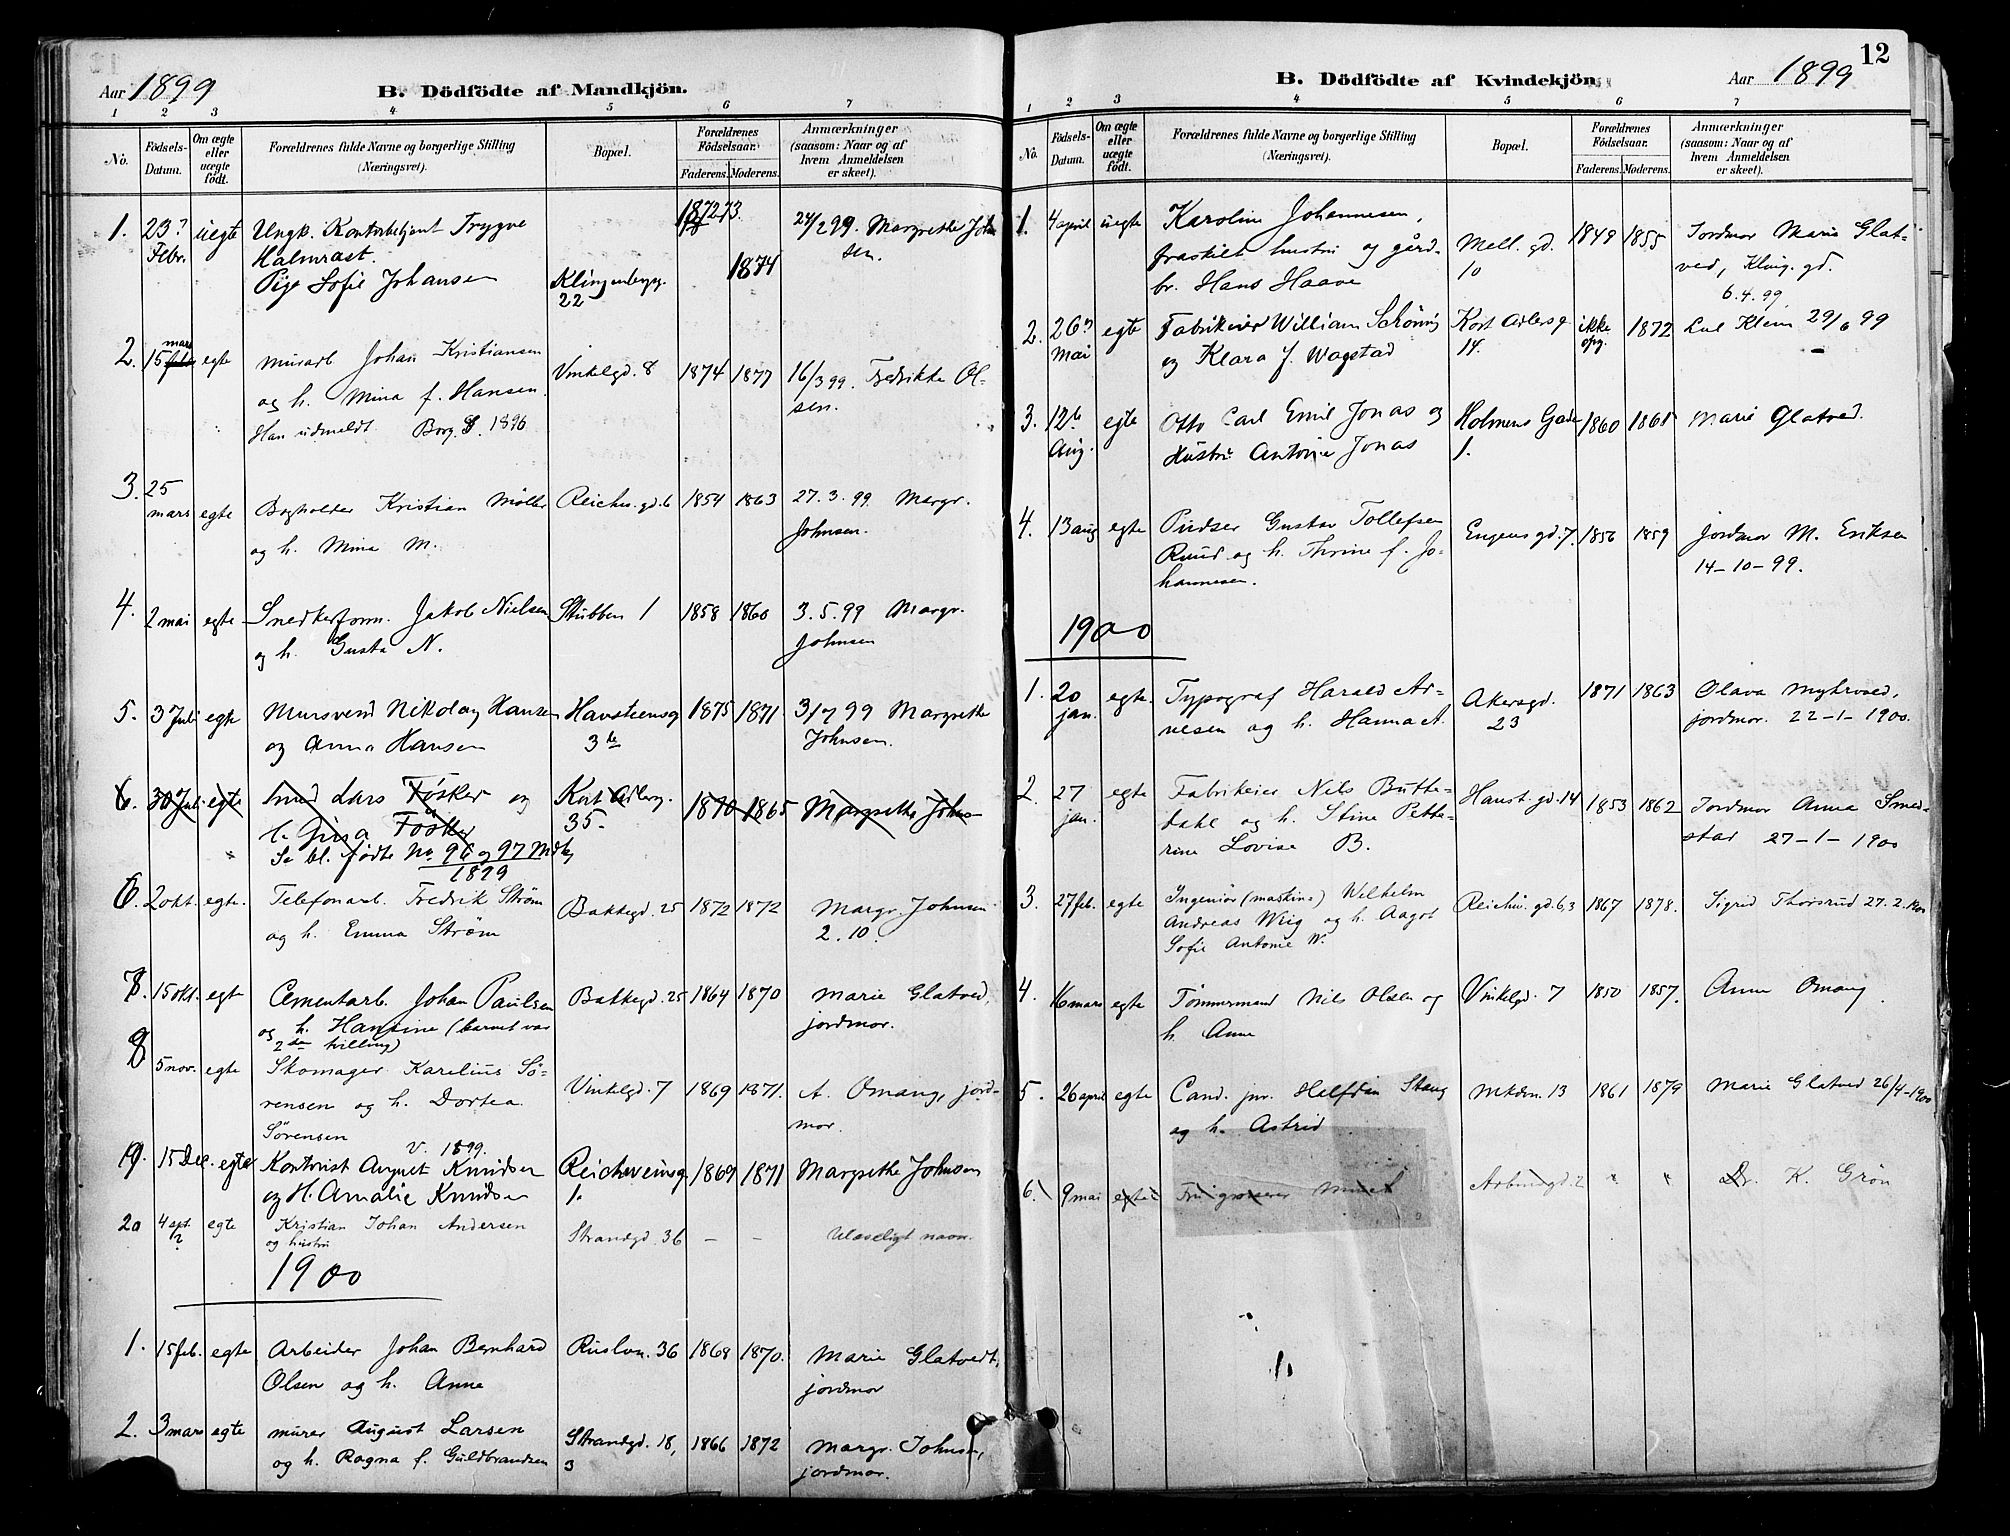 Aar 1899
B. Dödfödte af Mandkjön.
1 2 3 4 5 6 7
No.
Födsels-
Datum.
Om ægte
eller
uægte
födt.
Forældrenes fulde Navne og borgerlige Stilling
(Næringsvei).
Bopæl.
Forældrenes
Födselsaar.
Faderens. Moderens.
Anmærkninger
(saasom: Naar og af
hvem Anmeldelsen
er skeet).
1. 23? uegte Ungk. Kontorbetjent Trygve 1872 73. 24/2 99. Margrethe John
Febr. Halmrast. sen.
Pige Sofie Johansen Klingenbergg. 1874
22
mars
2. 15 febr egte murarb Johan Kristiansen Vinkelgd. 8 1874 1877 16/3 99. Fredrikke Ol-
og h. Mina f. Hansen. sen.
Han udmeldt Borg. 1896
3. 25
mars egte Bogholder Kristian Møller Reichw. gd. 6 1854 1863 27. 3. 99 Margr.
og h. Mina M. Johnsen.
4. 2 mai egte Snedkerform. Jakob Nielsen Stubben 1 1858 1860 3. 5. 99 Margr.
og h. Gusta N. Johnsen
5. 3 Juli egte Mursvend Nikolay Hansen Havstiensg 1875 1871 3/7 99 Margrethe
og Anna Hansen 3 de Johnsen.
6. 30 Juli egte Smed Lars Føsker og Kort Adlerg. 1870 1865 Margrethe Johns-
h. Gina Føsker 35.
Se bl. fødte No. 96 og 97 Mdkj
1899
6. 2 okt. egte. Telefonarb. Fredrik Strøm Bakkegd. 25 1872 1872 Margr. Johnsen
og h. Emma Strøm 2. 10.
7. 15 okt. egte Cementarb. Johan Paulsen Bakkegd. 25 1864 1870 Marie Glatved,
og h. Hansine (barnet var jordmor.
2den tvilling)
8 5 nov. egte Skomager Karelius Sø- Vinkelgd. 7 1869 1871. A. Omang, jord-
rensen og h. Dortea mor.
Sørensen
V. 1899.
9. 15 Dec. egte Kontorist August Knudsen Reichweinsg 1869 1871 Margrethe Johnsen
og H. Amalie Knudsen 1.
20 4 egte Kristian Johan Andersen Strandgd. 36 – – Ulæseligt navn.
og hustru
1900
1. 15 feb. egte Arbeider Johan Bernhard Ruslen. 36 1868 1870. Marie Glatvedt,
Olsen og h. Anne jordmor
2. 3 mars egte murer August Larsen Strandgd. 18, 1866 1872 Margr. Johnsen,
og h. Ragna f. Guldbrandsen 3 jordmor.
12
B. Dödfödte af Kvindekjön.
Aar 1899
1 2 3 4 5 6 7
No.
Födsels-
Datum.
Om ægte
eller
uægte
födt.
Forældrenes fulde Navne og borgerlige Stilling
(Næringsvei).
Bopæl.
Forældrenes
Födselsaar.
Faderens. Moderens.
Anmærkninger
(saasom: Naar og af
hvem Anmeldelsen
er skeet).
1. 4 april uegte Karoline Johannesen, Mell. gd. 1849 1855 Jordmor Marie Glat-
fraskilt hustru og gård- 10 ved, Kling. gd.
br. Hans Haave 6. 4. 99.
2. 26? egte Fabrikeier William Schønig Kort Adlersg. ikke 1872 Lul Klem 29/6 99
mai og Klara f. Wagstad 14. opg.
3. 12te egte Otto Carl Emil Jonas og Holmens Gade 1860 1861 Marie Glatved.
Aug. Hustru Antonie Jonas 1.
4. 13 aug egte Pudser Gustav Tollefsen Engens gd. 7. 1856 1859 Jordmor M. Eriksen
Ruud og h. Thrine f. Jo- 14–10–99.
hannesen.
1900
1. 20 egte. Typograf Harald Ar- Akersgd. 1871 1863 Olava Myhrvold,
jan. nesen og h. Hanna A. 23 jordmor. 22–1–1900.
2. 27 egte Fabrikeier Nils Butte- Haust. gd. 14 1853 1862 Jordmor Anna Smed-
jan. dahl og h. Stine Pette- stad 27–1–1900
rine Lovise B.
3. 27 feb. egte Ingeniør (maskine) Wilhelm Reichw. gd. 6, 3 1867 1878. Sigrid Thorsrud 27. 2. 1900
Andreas Wiig og h. Aagot
Sofie Antonie W.
4. 16 mars egte Tømmermand Nils Olsen og Vinkelgd. 7 1850 1857. Anna Omang.
h. Anne
5. 26 april egte Cand. jur. Halfdan Stang Mkdm. 13 1861 1879 Marie Glatved 26/4–1900
og h. Astrid
6. 9 mai egte Fru grosserer Arbingd. 2 " " Dr. K. Grön